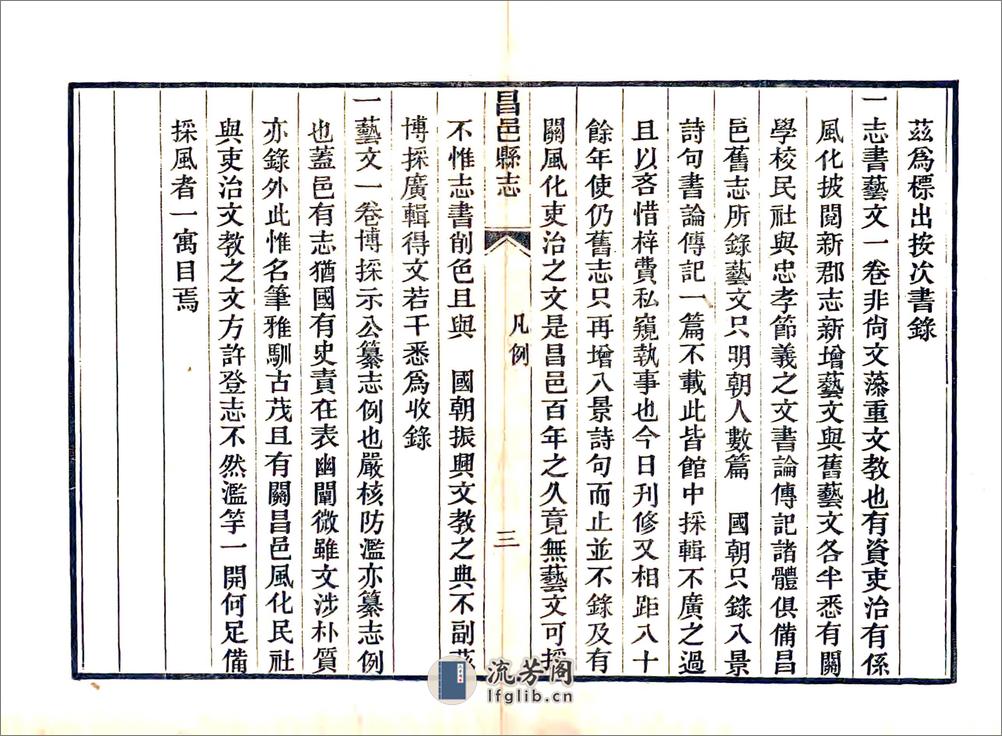 茲爲標出按次書錄
一志書藝文一卷非尙文藻重文教也有資吏治有係
風化披閱新郡志新增藝文與舊藝文各半悉有關
學校民社與忠孝節義之文書論傳記諸體俱備昌
邑舊志所錄藝文只明朝人數篇　國朝只錄八景
詩句書論傳記一篇不載此皆館中採輯不廣之過
且以吝惜梓費私窺執事也今日刊修又相距八十
餘年使仍舊志只再增八景詩句而止並不錄及有
關風化吏治之文是昌邑百年之久竟無藝文可採
昌邑縣志
凡例
三
不惟志書削色且與　國朝振興文教之典不副茲
博採廣輯得文若干悉爲收錄
一藝文一卷博採示公纂志例也嚴核防濫亦纂志例
也蓋邑有志猶國有史責在表幽闡微雖文涉朴質
亦錄外此惟名筆雅馴古茂且有關昌邑風化民社
與吏治文教之文方許登志不然濫竽一開何足備
採風者一寓目焉
流芳阁
lfglib.cn